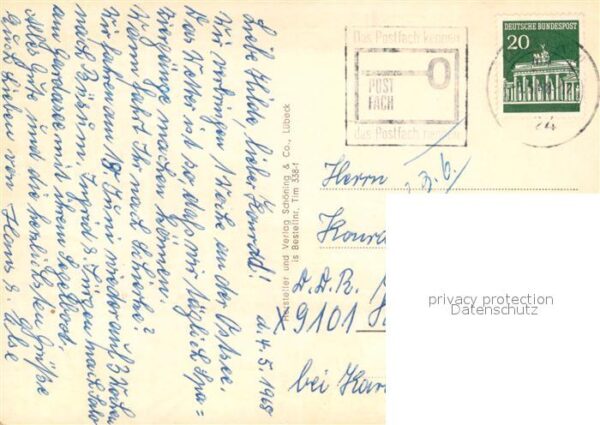 d. 4.5.1968
Liebe Hilde, lieber Konrad!
Wir verbringen 1 Woche an der Ostsee.
Das Wetter ist so, das wir täglich Spa=
ziergänge machen können.
Wann fahrt Ihr nach
Wir fahren am 8. Juni wieder auf 3 Wochen
nach Büsum. Ingrid & Jürgen nach
am Gardasee mit Ihrem Segelboot.
Alles Gute und die herzlichsten Grüße
Euch Lieben von Hans & Else
Hersteller und Verlag Schöning & Co., Lübeck
is Bestellnr. Tim 338-1
Das Postfach kennen
POST
FACH
das Postfach nennen
DEUTSCHE BUNDESPOST
20
Herrn
Konra
D.D.R.
X9101
bei Kar
privacy protection
Datenschutz